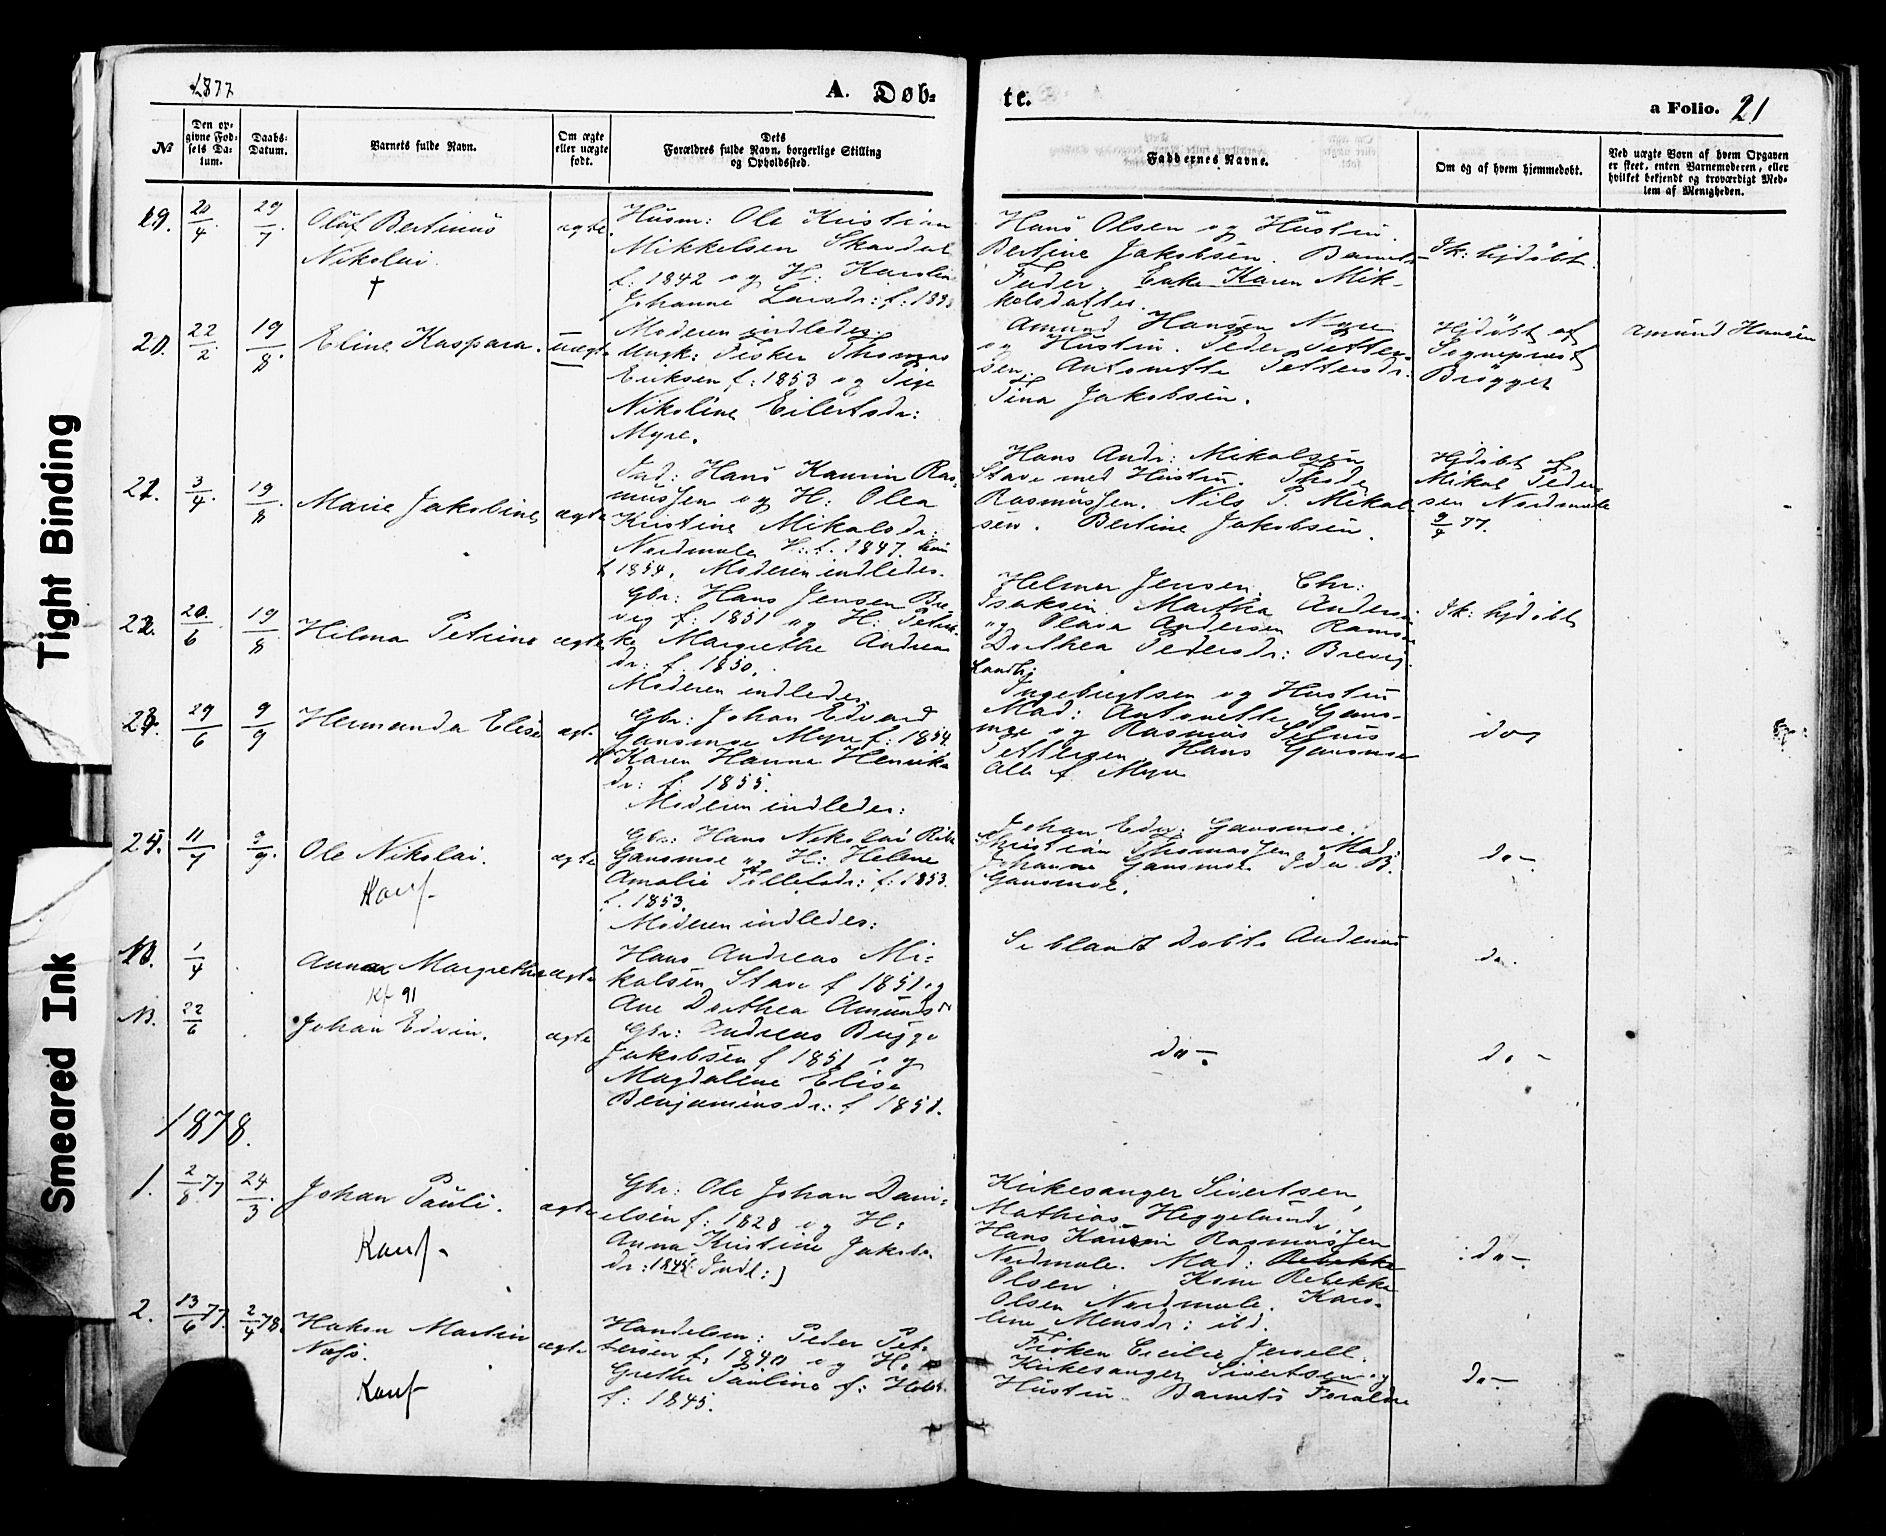 1877
A. Døb-
te.
a Folio. 21
№
Den op-
givne Fød-
sels Da-
tum.
Daabs-
Datum.
Barnets fulde Navn.
Om ægte
eller uægte
født.
Dets
Forældres fulde Navn, borgerlige Stilling
og Opholdssted.
Faddernes Navne.
Om og af hvem hjemmedøbt.
Ved uægte Børn af hvem Opgaven
er skeet, enten Barnemoderen, eller
hvilket bekjendt og troværdigt Med-
lem af Menigheden.
Tight Binding
Smeared Ink
19. 20/4 29/7
Oluf Bertinus
Nikolai.
†
ægte
Husm: Ole Kristian
Mikkelsen Skavdal
f: 1842 og H: Karoline
Johanne Larsdr: f:
Hans Olsen og Hustru.
Bertine Jakobsen. Barnets
Fader. Enke Karen Mik-
kelsdatter.
Ik: hjdøbt.
20. 22/2 19/8.
Eline Kaspara.
uægte
Moderen indledes.
Ungk: Fisker Thomas
Eriksen f: 1853 og Pige
Nikoline Eilertsdr:
Myre.
Amund Hansen Myre
og Hustru. Peder Petter-
sen. Antonette Pettersdr:
Tina Jakobsen.
Hjdøbt af
Sognepræst
Brøgger
Amund Hansen
21. 3/4 19/8
Marie Jakobine
ægte
Hans Kaurin Ras-
mussen og H: Olea
Kristine Mikalsdr:
Nordmele H: f. 1847. hun
f 1854. Moderen indledes.
Hans Andr: Mikalsen
Stave med Hustru.
Rasmussen. Nils P. Mikal-
sen. Bertine Jakobsen.
Hjdøbt af
Mikal Peder-
sen Nordmele
9/4 77.
22. 20/6 19/8
Hilma Petrine
ægte
Gbr: Hans Jensen Bre-
vig f: 1851 og H: Petrik-
ke Margrethe Andreas
dr: f. 1850.
Moderen indledes
Helmer Jensen. Chr:
Isaksen. Martha Anders:
og Olava Andersen
Dorthea Pedersdr: Brevig.
Ik: hjdøbt
23. 29/6 9/9
Hermanda Elise
ægte
Gbr: Johan Edvard
Gansmoe Myre f: 1854.
H Karen Hanna Henriks
dr: f. 1855.
Moderen indledes:
Landh:
Ingebrigtsen og Hustru
Mad: Antonette Gans-
moe og Rasmus
Pettersen Hans Gansmoe
Alle f Myre
do,
24. 11/7 9/9
Ole Nikolai.
Konf.
ægte
Gbr: Hans Nikolai
Gansmoe og H: Helene
Amalie Tollefsdr: f: 1853.
f. 1853.
Moderen indledes:
Johan Edv: Gansmoe.
Christian Thomassen, Mad:
Johanna Gansmoe. Ida B.
Gansmoe.
do-
NB. 1/4
Anna Margrethe
Kf 91
ægte
Hans Andreas Mi-
kalsen Stave f 1851 og
Ane Dorthea Amunds
Se blandt Døbte Andenæs
do.
NB. 22/6
Johan Edvin.
ægte
Gbr: Andreas Bugge
Jakobsen f 1851 og
Magdaline Elise
Benjaminsdr: f 1851.
do-
do-
1878.
1. 2/8 77 24/3
Johan Pauli.
Konf.
ægte
Gbr: Ole Johan Dani-
elsen f: 1828 og H:
Anna Kristine Jakobs
dr: 1845 Indl:)
Kirkesanger Sivertsen,
Mathias Heggelund,
Hans Kaurin Rasmussen
Nordmele. Mad: Rebekka
Olsen. Kone Rebekke
Olsen Nordmele. Karo-
line Mensdr: ibd.
:do-
2. 13/6 77. 2/4 78.
Hakon Martin
Næss.
Konf
ægte
Handelsm: Peder Pet-
tersen f. 1840 og H:
Grethe Pauline f: Holst
f: 1845.
Frøken Cecilie Jervell.
Kirkesanger Sivertsen og
Hustru. Barnets Forældre
do-